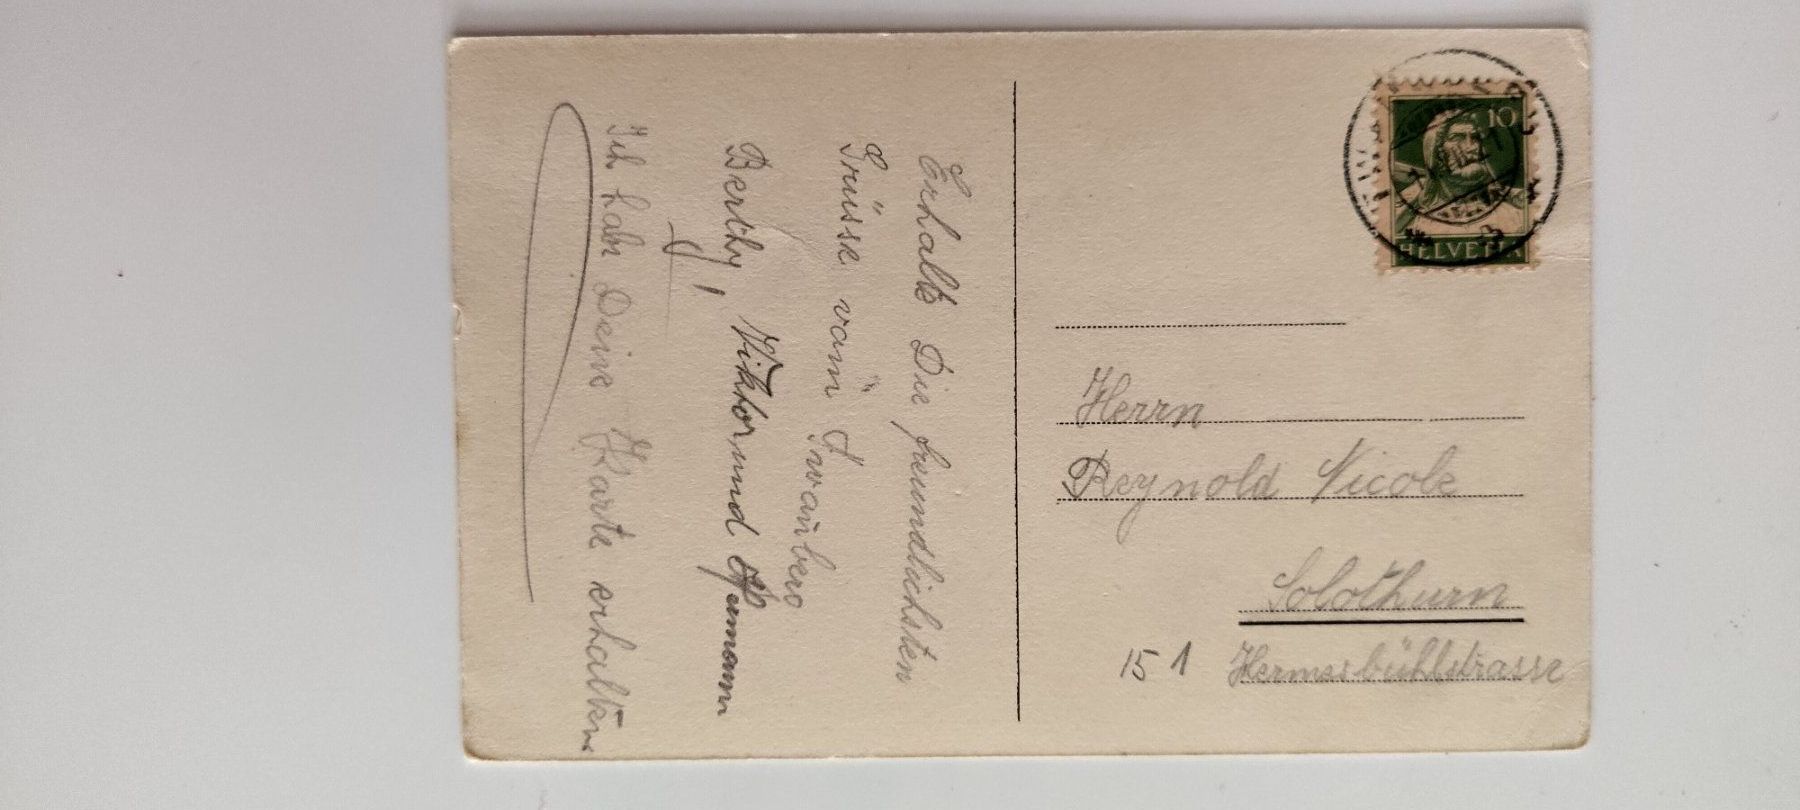 Erhalte Die freundlichsten
Grüsse vom
Berthy, Viktor und
Ich habe Deine Karte erhalten
10
HELVETIA
Herrn
Reynold Nicole
Solothurn
151 Hermesbühlstrasse